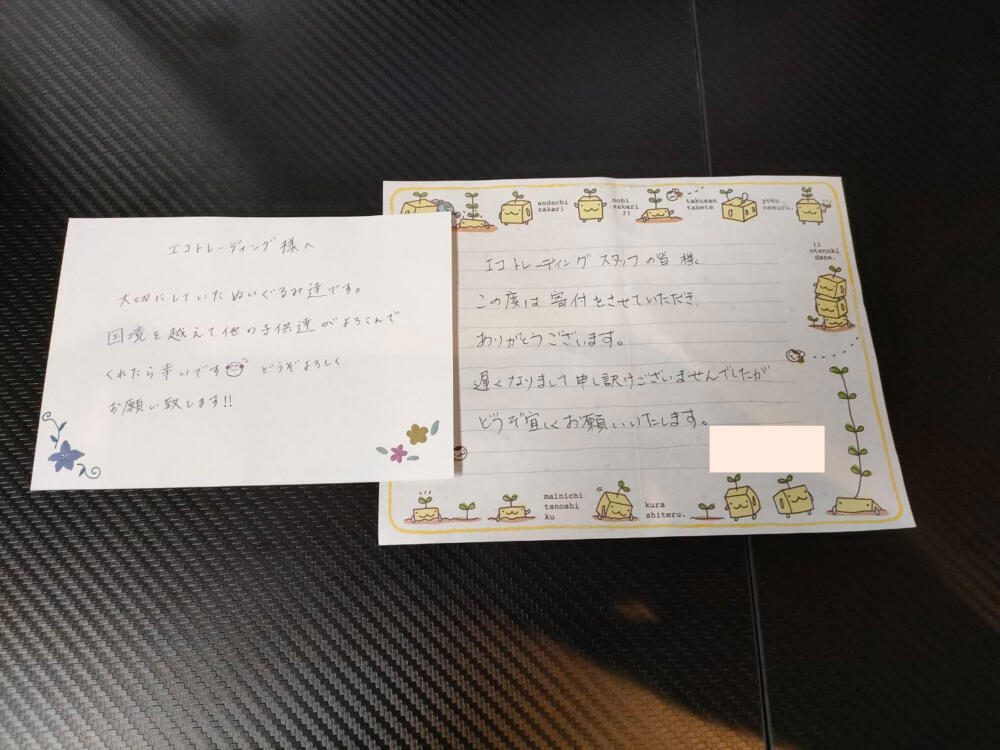 エコトレーディング様へ
大切にしていたぬいぐるみ達です。
国境を越えて他の子供達がよろこんで
くれたら幸いです どうぞよろしく
お願い致します!!
sodachi
zakari
nobi
zakari
?!
takusan
tabete
yoku
nemuru.
ii
otennki
dane.
エコトレーディング スタッフの皆様
この度は寄付をさせていただき
ありがとうございます。
遅くなりまして申し訳ございませんでしたが
どうぞ宜しくお願いいたします。
mainichi
tanoshi
ku
kura
shiteru.